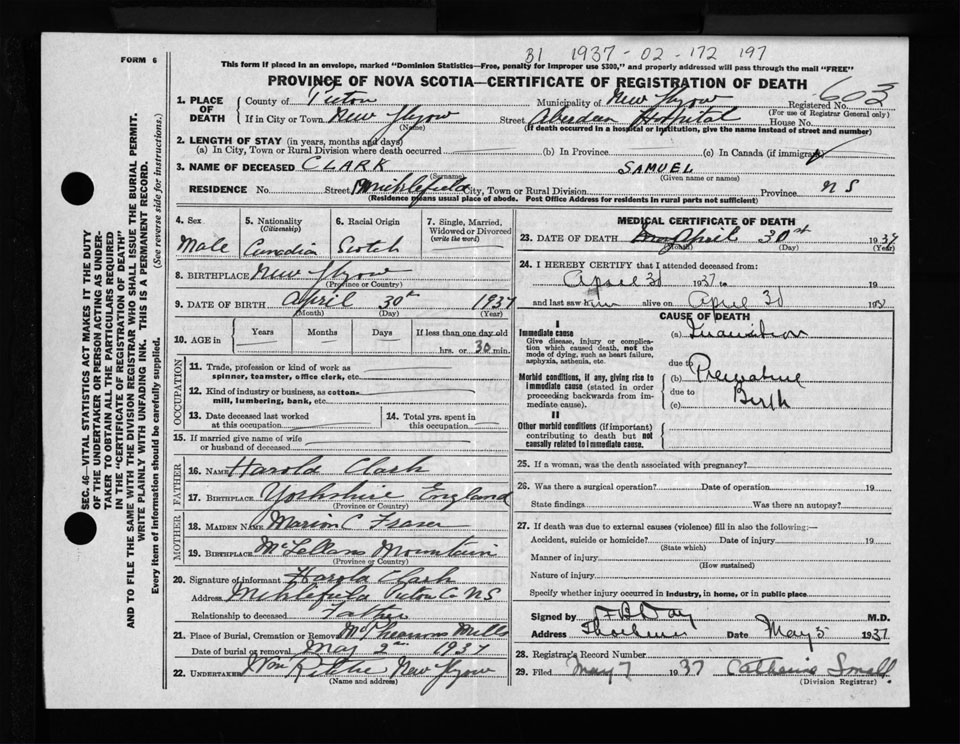 B1 1937 - 02 - 172 197
FORM 6
This form if placed in an envelope, marked "Dominion Statistics—Free, penalty for improper use $300," and properly addressed will pass through the mail "FREE"
PROVINCE OF NOVA SCOTIA—CERTIFICATE OF REGISTRATION OF DEATH
603
1. PLACE OF DEATH
County of Pictou Municipality of New Glasgow Registered No.
(For use of Registrar General only)
If in City or Town New Glasgow Street Aberdeen Hospital House No.
(Name) (If death occurred in a hospital or institution, give the name instead of street and number)
2. LENGTH OF STAY (in years, months and days)
(a) In City, Town or Rural Division where death occurred (b) In Province (c) In Canada (if immigrant)
3. NAME OF DECEASED CLARK SAMUEL
(Surname) (Given name or names)
RESIDENCE No. Street City, Town or Rural Division Province N S
(Residence means usual place of abode. Post Office Address for residents in rural parts not sufficient)
4. Sex Male
5. Nationality (Citizenship) Canadian
6. Racial Origin Scotch
7. Single, Married, Widowed or Divorced (write the word)
8. BIRTHPLACE New Glasgow
(Province or Country)
9. DATE OF BIRTH April 30th 1937
(Month) (Day) (Year)
10. AGE in Years Months Days If less than one day old
hrs. or 30 min.
OCCUPATION
11. Trade, profession or kind of work as spinner, teamster, office clerk, etc.
12. Kind of industry or business, as cotton-mill, lumbering, bank, etc.
13. Date deceased last worked at this occupation
14. Total yrs. spent in this occupation
15. If married give name of wife or husband of deceased
FATHER
16. NAME Harold Clark
17. BIRTHPLACE Yorkshire England
(Province or Country)
MOTHER
18. MAIDEN NAME Marion C Fraser
19. BIRTHPLACE McLellans Mountain
(Province or Country)
20. Signature of informant Harold Clark
Address Pictou Co NS
Relationship to deceased Father
21. Place of Burial, Cremation or Removal McPhersons Mills
Date of burial or removal May 2nd 1937
22. UNDERTAKER New Glasgow
(Name and address)
MEDICAL CERTIFICATE OF DEATH
23. DATE OF DEATH April 30st 1937
(Month) (Day) (Year)
24. I HEREBY CERTIFY that I attended deceased from:
April 30 1937 to 19
and last saw him alive on April 30 193
CAUSE OF DEATH
I
Immediate cause
Give disease, injury or complication which caused death, not the mode of dying, such as heart failure, asphyxia, asthenia, etc.
(a) Inanition
due to
Morbid conditions, if any, giving rise to immediate cause (stated in order proceeding backwards from immediate cause).
(b) Premature
due to
(c) Birth
II
Other morbid conditions (if important) contributing to death but not causally related to immediate cause.
25. If a woman, was the death associated with pregnancy?
26. Was there a surgical operation? Date of operation 19
State findings Was there an autopsy?
27. If death was due to external causes (violence) fill in also the following:—
Accident, suicide or homicide? Date of injury 19
(State which)
Manner of injury
(How sustained)
Nature of injury
Specify whether injury occurred in industry, in home, or in public place
Signed by F B Day M.D.
Address Thorburn Date May 5 1937
28. Registrar's Record Number
29. Filed May 7 1937 Catharine Small
(Division Registrar)
SEC. 46—VITAL STATISTICS ACT MAKES IT THE DUTY
OF THE UNDERTAKER OR PERSON ACTING AS UNDER-
TAKER TO OBTAIN ALL THE PARTICULARS REQUIRED
IN THE "CERTIFICATE OF REGISTRATION OF DEATH"
AND TO FILE THE SAME WITH THE DIVISION REGISTRAR WHO SHALL ISSUE THE BURIAL PERMIT.
WRITE PLAINLY WITH UNFADING INK. THIS IS A PERMANENT RECORD.
Every item of information should be carefully supplied. (See reverse side for instructions.)